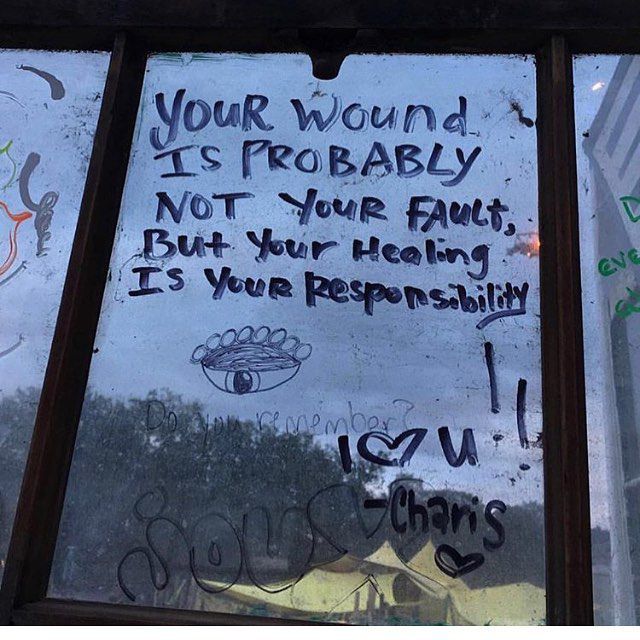 YOUR Wound
IS PROBABLY
NOT YOUR FAULT,
But Your Healing
IS YOUR Responsibility
!!
Do you remember?
I ♡ U
-Charis
♡